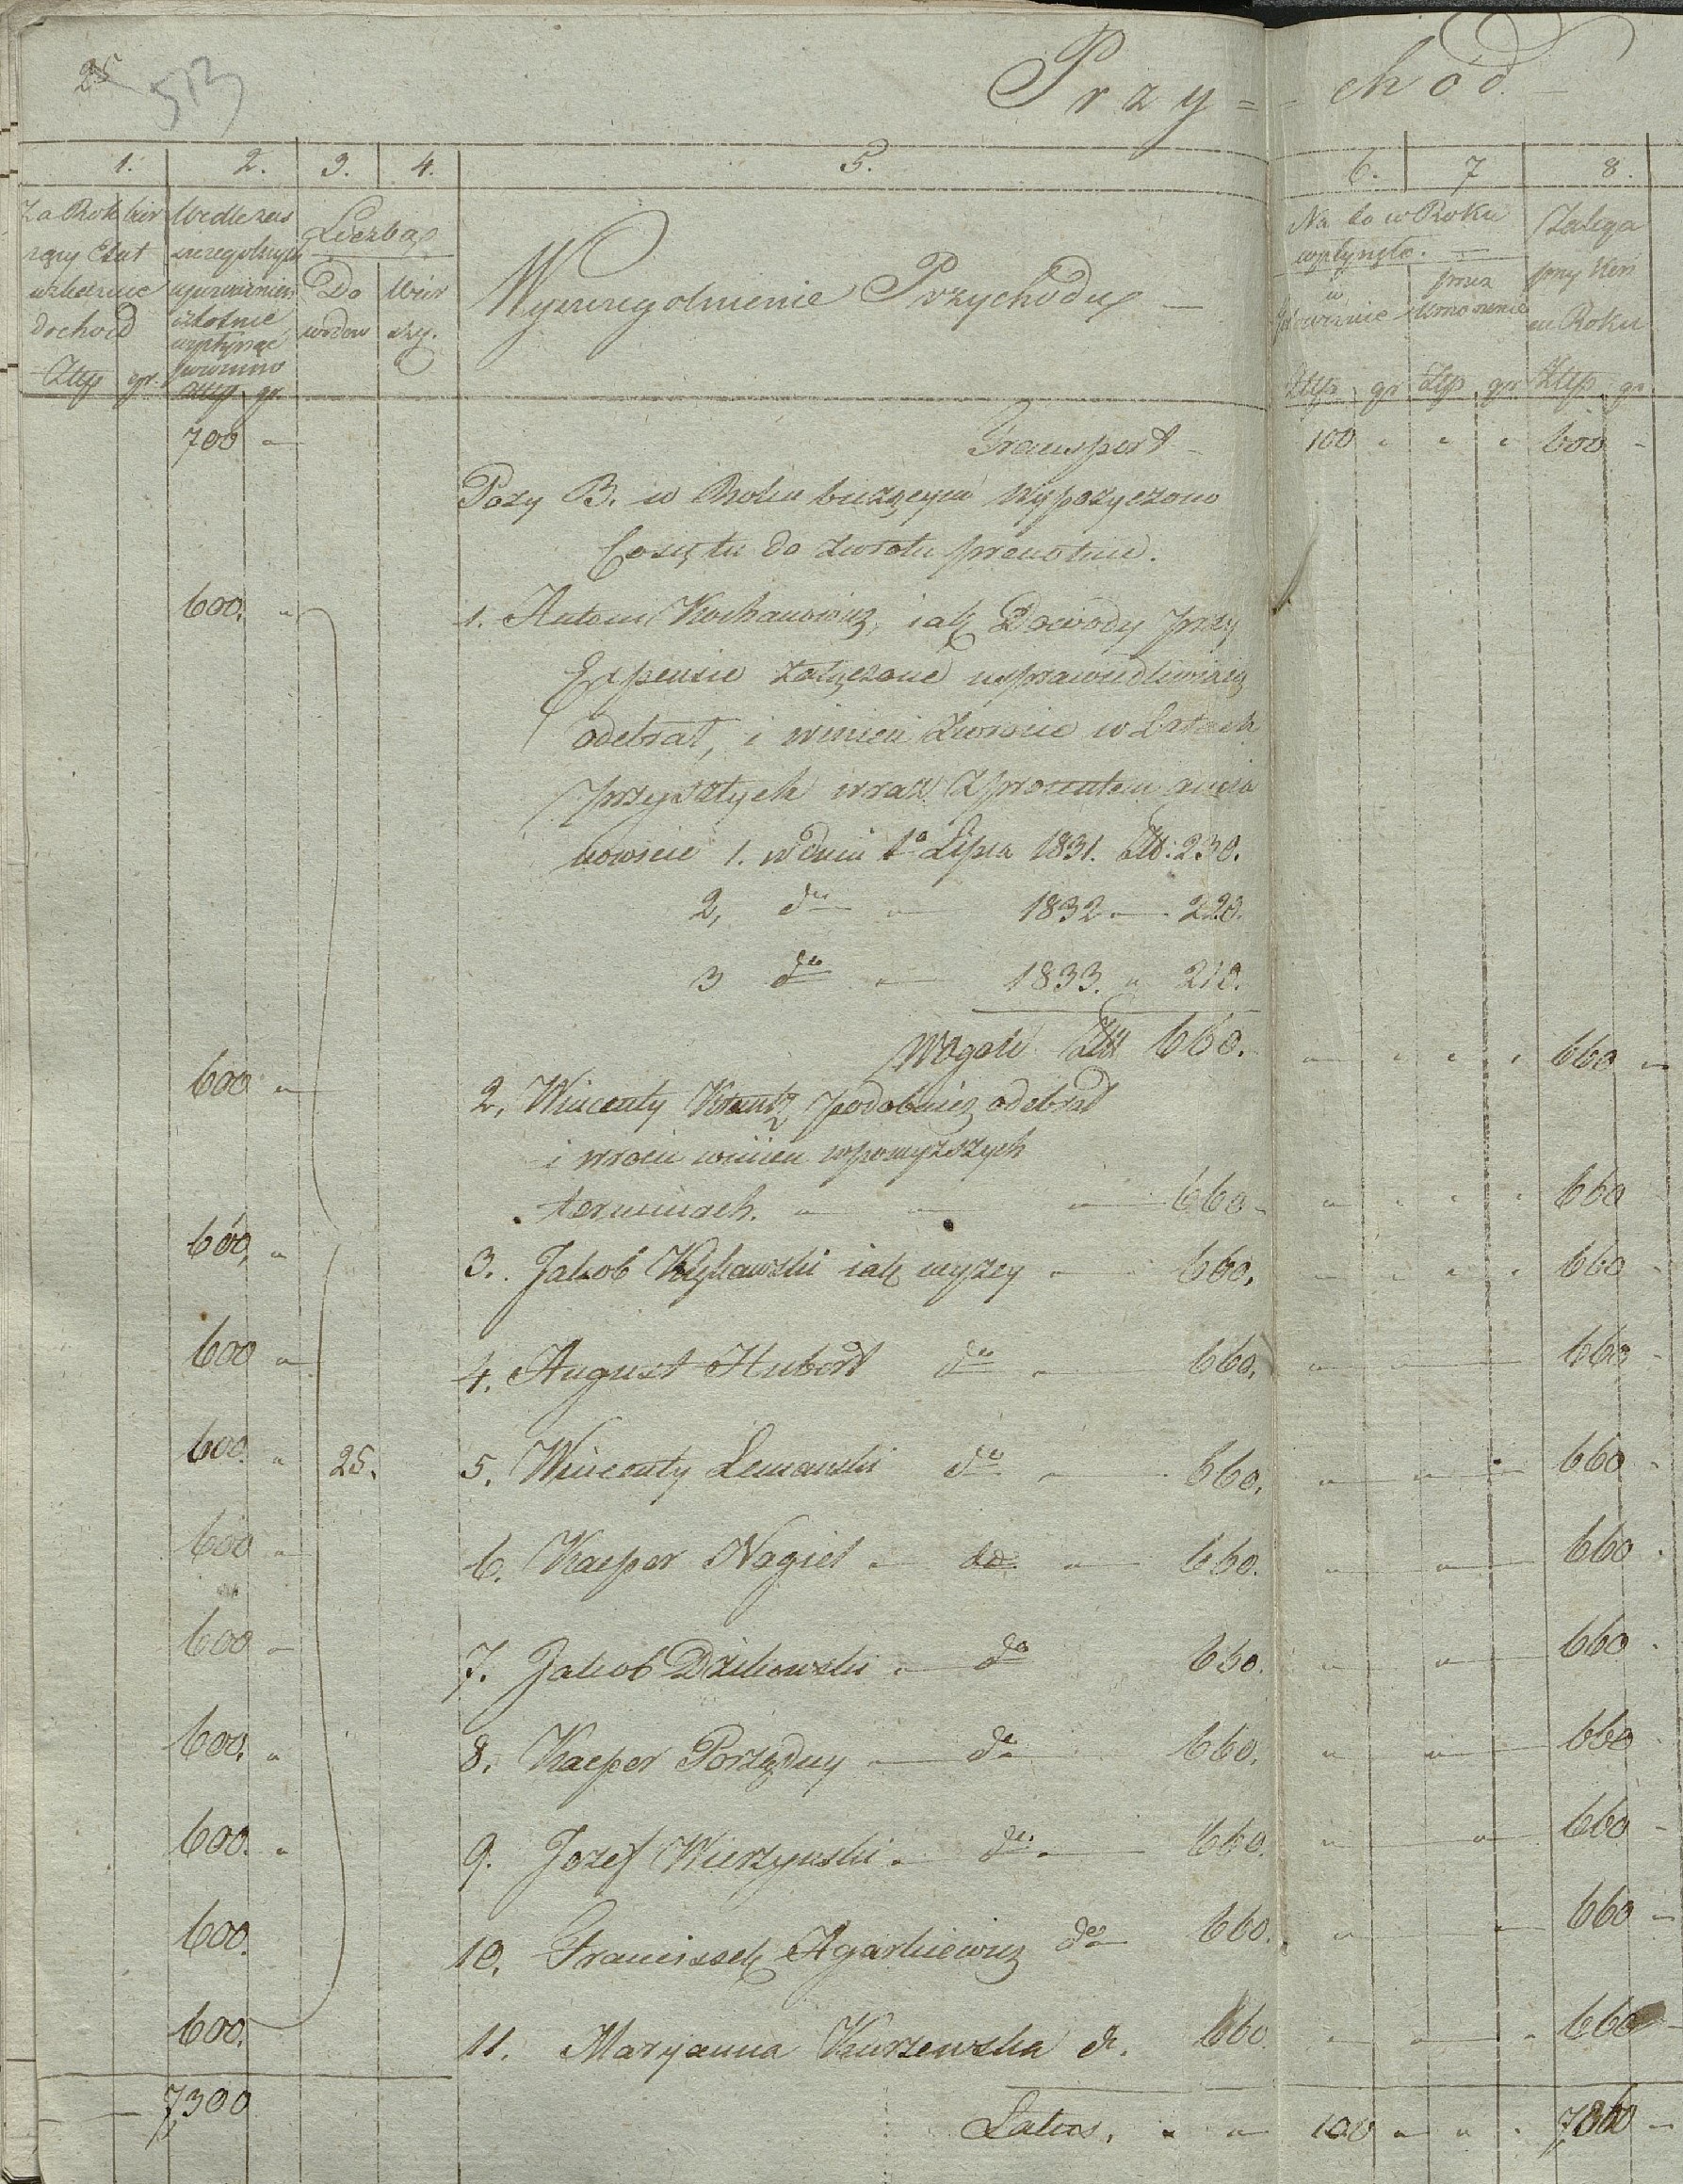 25
513
Przy= =chód.
1. 2. 3. 4. 5. 6. 7 8.
Za Rok bie
rzący Etat
dochod
Złtp gr.
Wedle zas
powinno
Złtp gr.
Liczba
Do
wodow
Wier
szy.
Wyszczegolnienie Przychodu
Na to w Roku
wpłynęło.
w
Gotowiznie
przez
Złtp gr Złtp gr
Zalega
przy Koń
cu Roku
Złtp gr
700 - Transport - 100 600 -
Pozy B. w Roku bieżącym Wypożyczono
Co się tu do zwrotu prenotuie.
600. 1. Antoni Kochanowicz, iak Dowody przy
Expensie załączone usprawiedliwiaią
odebrał, i winien zwrocic w Latach
przyszłych wraz z procentem mia
nowicie 1. w dniu 1o Lipca 1831. Złt. 230.
2, dto 1832 220.
3 dto 1833. 210.
Wogole Złt 660. 660
600 2, Wincenty Krantz podobnież odebrał
i wrocic winien w powyższych
terminach. 660 660
600, 3. Jakob Kłykawski iak wyzey 660. 660
600 4. August Hubert dto 660. 660
600. 25. 5. Wincenty Lemanski dto 660. 660
600 6. Kacper Nagiel do 660. 660
600 7. Jakob Dzikowski do 660. 660
600. 8. Kacper Porządny do 660. 660
600. 9. Jozef Wierzynski dto 660. 660
600. 10. Franciszek Agarkiewicz dto 660. 660
600. 11. Maryanna Kurzewska d. 660 660
7,300 Latus. 100 7,860